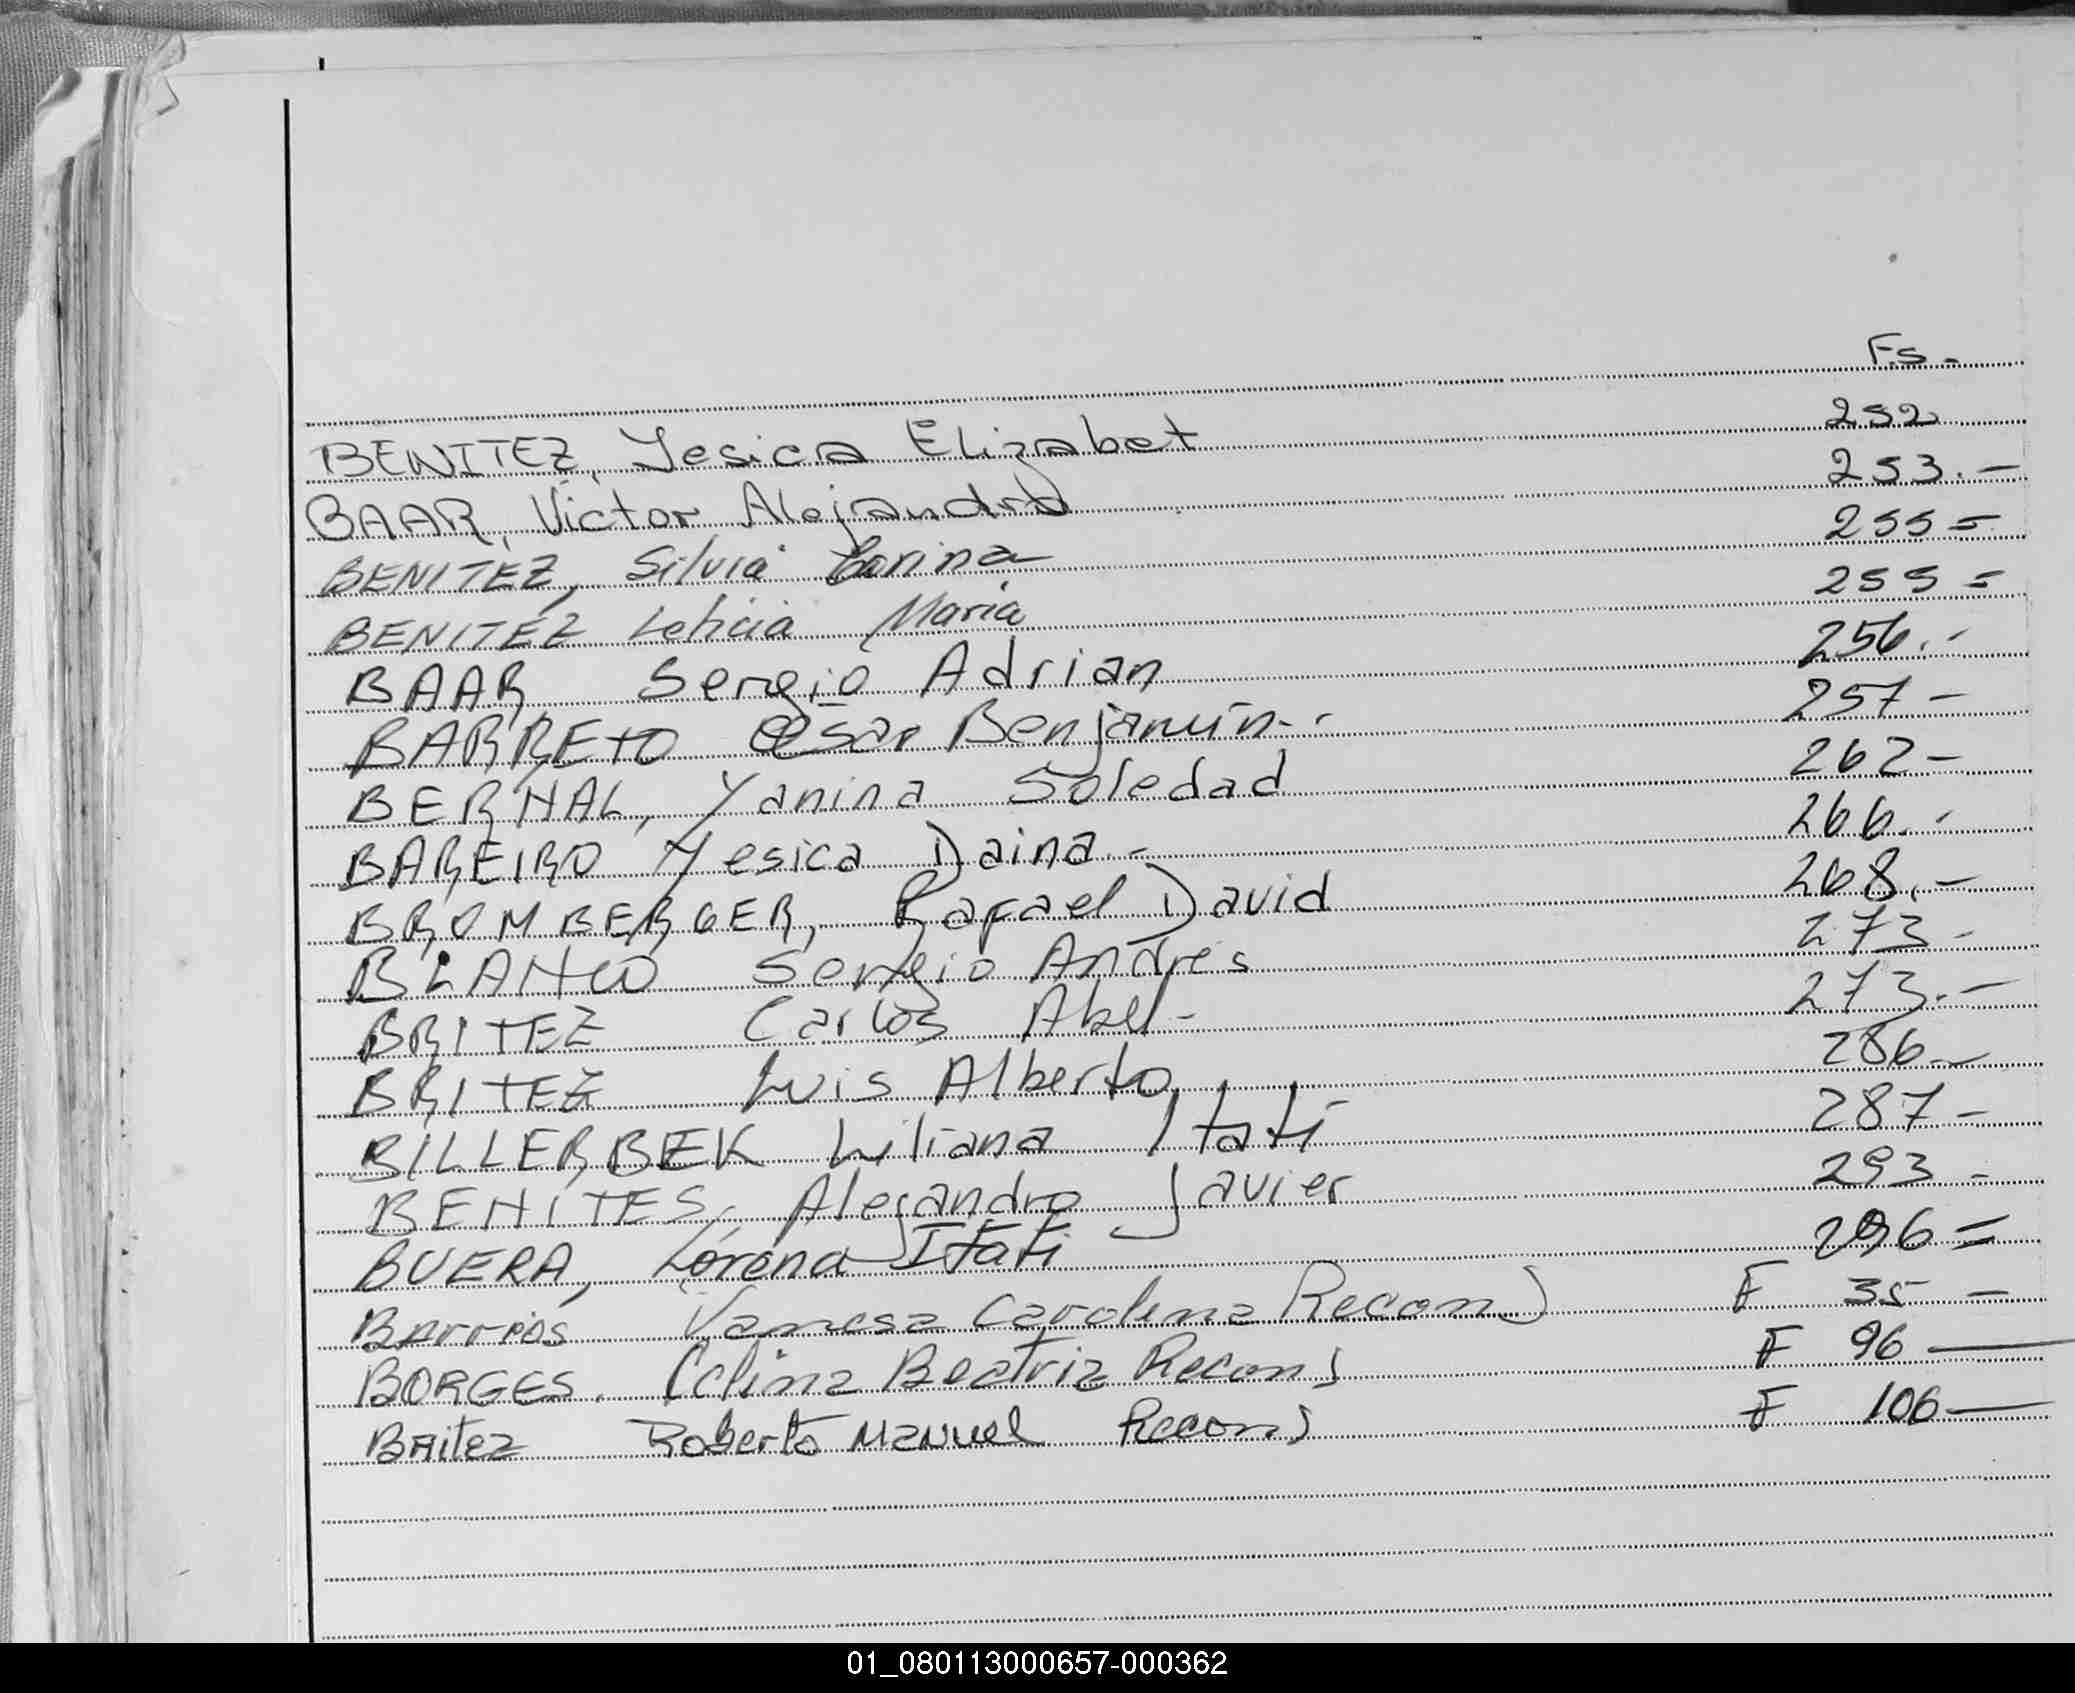 Fs.
BENITEZ, Yesica Elizabet 252
BAAR, Victor Alejandro 253.-
BENITEZ, Silvia Carina 255=
BENITEZ Leticia María 255=
BAAR Sergio Adrian 256.-
BARREtO César Benjamín.- 257-
BERNAL, Yanina Soledad 262-
BAREIRO Yesica Daina.- 266.-
BROMBERGER, Rafael David 268.-
BLANCO Sergio Andrés 273-
BRITEZ Carlos Abel- 273.-
BRITEZ Luis Alberto 286-
BILLERBEK Liliana Itatí 287-
BENITES, Alejandro Javier 293-
BUERA, Lorena Itatí 296=
BArrios Vanesa Carolina Recon) F 35-
BORGES. Celina Beatriz Recon) F 96-
BRitez Roberto MANuel Recon) F 106-
01_080113000657-000362